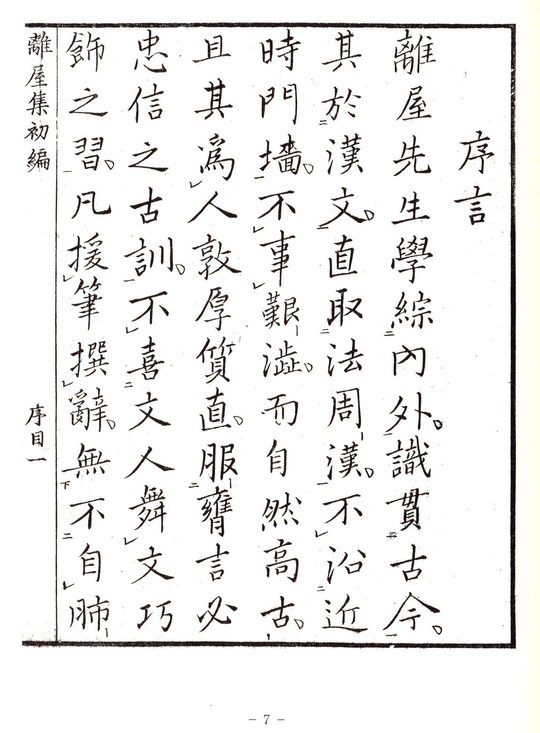 序言
離屋先生學綜內外。識貫古今。
其於漢文。直取法周漢。不沿近
時門墻。不事艱澁。而自然高古。
且其為人敦厚質直。服膺言必
忠信之古訓。不喜文人舞文巧
飾之習。凡援筆撰辭。無不自肺
離屋集初編
序目一
- 7 -